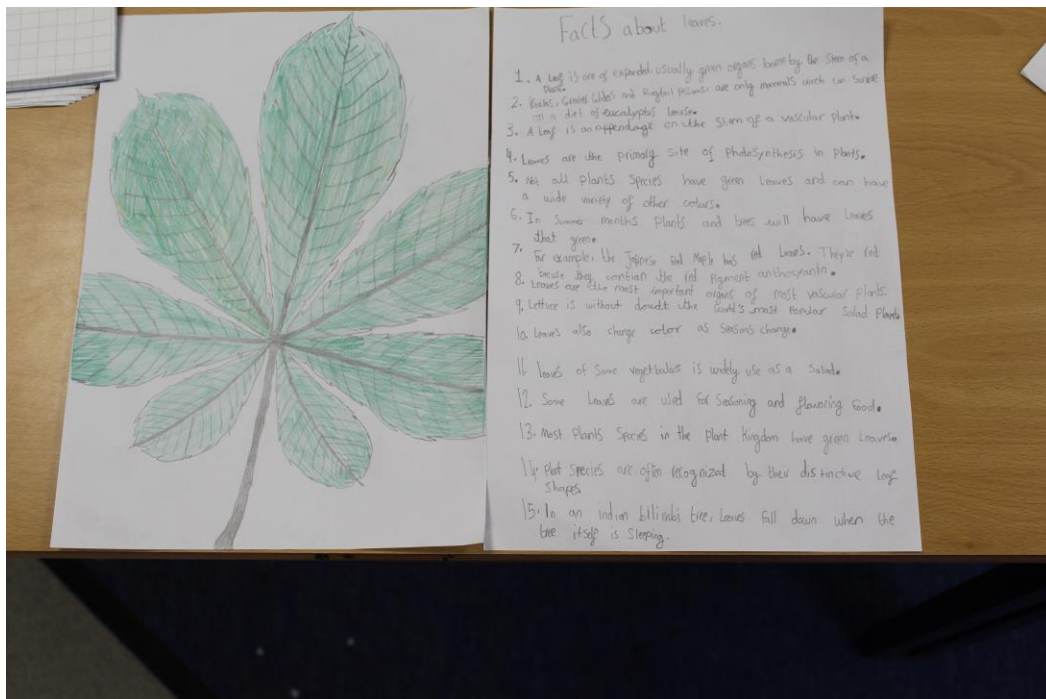 Facts about leaves.
1. A Leaf is one of expanded, usually green organs borne by the Stem of a
Plant.
2. Koalas, Greater Gliders and Ringtail Possums are only mammals wich can Survive
on a diet of eucalyptus
3. A Leaf is an appendage on the stem of a vascular plant.
4. Leaves are the primary site of Photosynthesis in Plants.
5. Not all Plants Species have green Leaves and can have
a wide variety of other colurs.
6. In Summer months Plants and trees will have Leaves
that green.
7. For example, the Japnese Red Maple has red Leaves. They're red
becuse they contian the red Pigment
8. Leaves are the most important organs of most vascular Plants.
9. Lettuce is without doudt the world's most Popular Salad Plant.
10. Leaves also change color as Seasons change.
11. Leaves of Some is widely use as a Salad.
12. Some Leaves are used for Seasoning and flavoring food.
13. Most Plants Species in the Plant Kingdom have green Leaves.
14. Plant Species are often recognized by their distinctive Leaf
Shapes
15. In an indian bilimbi tree, Leaves fall down when the
tree itself is Sleeping.